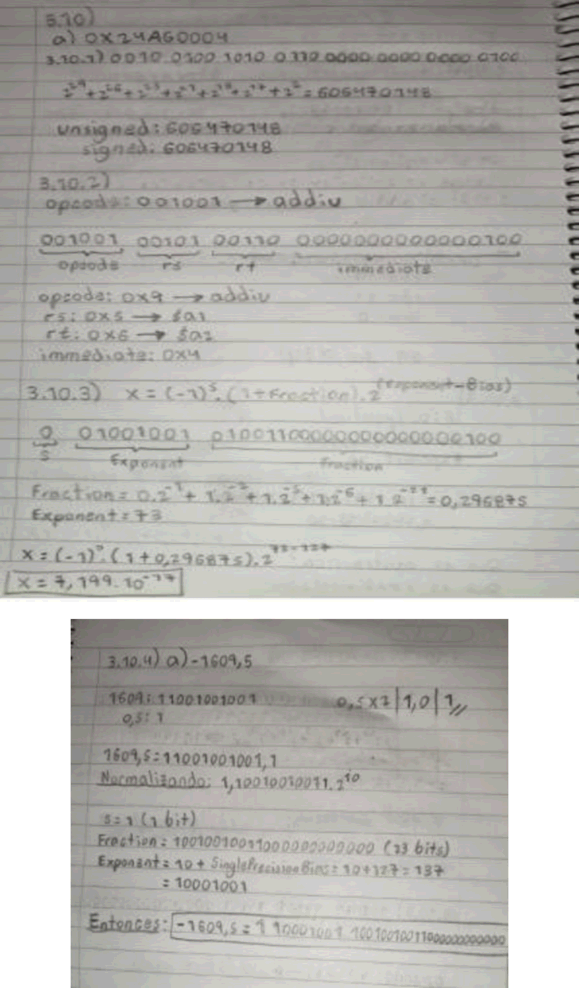 3.10)
a) 0X24A60004
3.10.1) 0010 0100 1010 0110 0000 0000 0000 0100
unsigned: 606470148
signed: 606470148
3.10.2)
opcode: 001001 → addiu
001001 00101 00110 0000000000000100
opcode rs rt immediate
opcode: 0x9 → addiu
rs: 0x5 → $a1
rt: 0x6 → $a2
immediate: 0x4
3.10.3) x = (-1)^s · (1+Fraction) · 2^(Exponent-Bias)
0 01001001 01001100000000000000100
s Exponent Fraction
Fraction = 0.2^-1 + 1.2^-2 + 1.2^-5 + 1.2^-6 + 1.2^-21 = 0,296875
Exponent = 73
x = (-1)^0 · (1+0,296875) · 2^73-127
x = 7,199 · 10^-17
3.10.4) a) -1609,5
1609: 11001001001 0,5x2 | 1,0 | 1
0,5: 1
1609,5 = 11001001001,1
Normalizando: 1,10010010011 . 2^10
s = 1 (1 bit)
Fraction = 10010010011000000000000 (23 bits)
Exponent = 10 + SinglePrecisionBias = 10+127 = 137
= 10001001
Entonces: -1609,5 = 1 10001001 10010010011000000000000